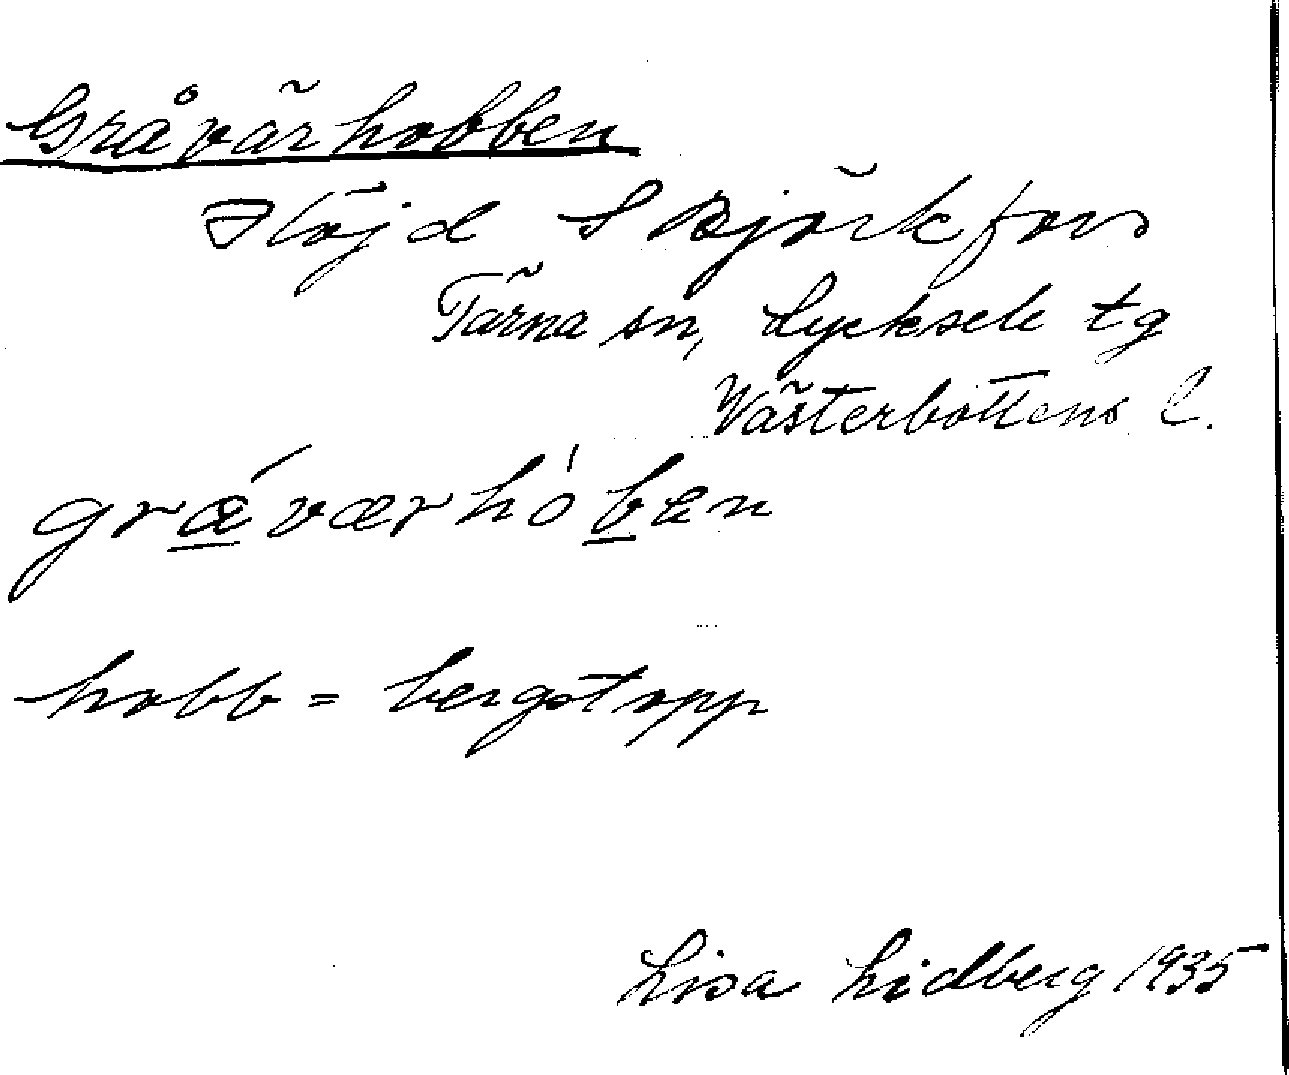 Gråvärhobben
Höjd S Björkfors
Tärna sn, Lycksele tg
Västerbottens l.
grǽværhóben
hobb = bergstopp
Lisa Lidberg 1935